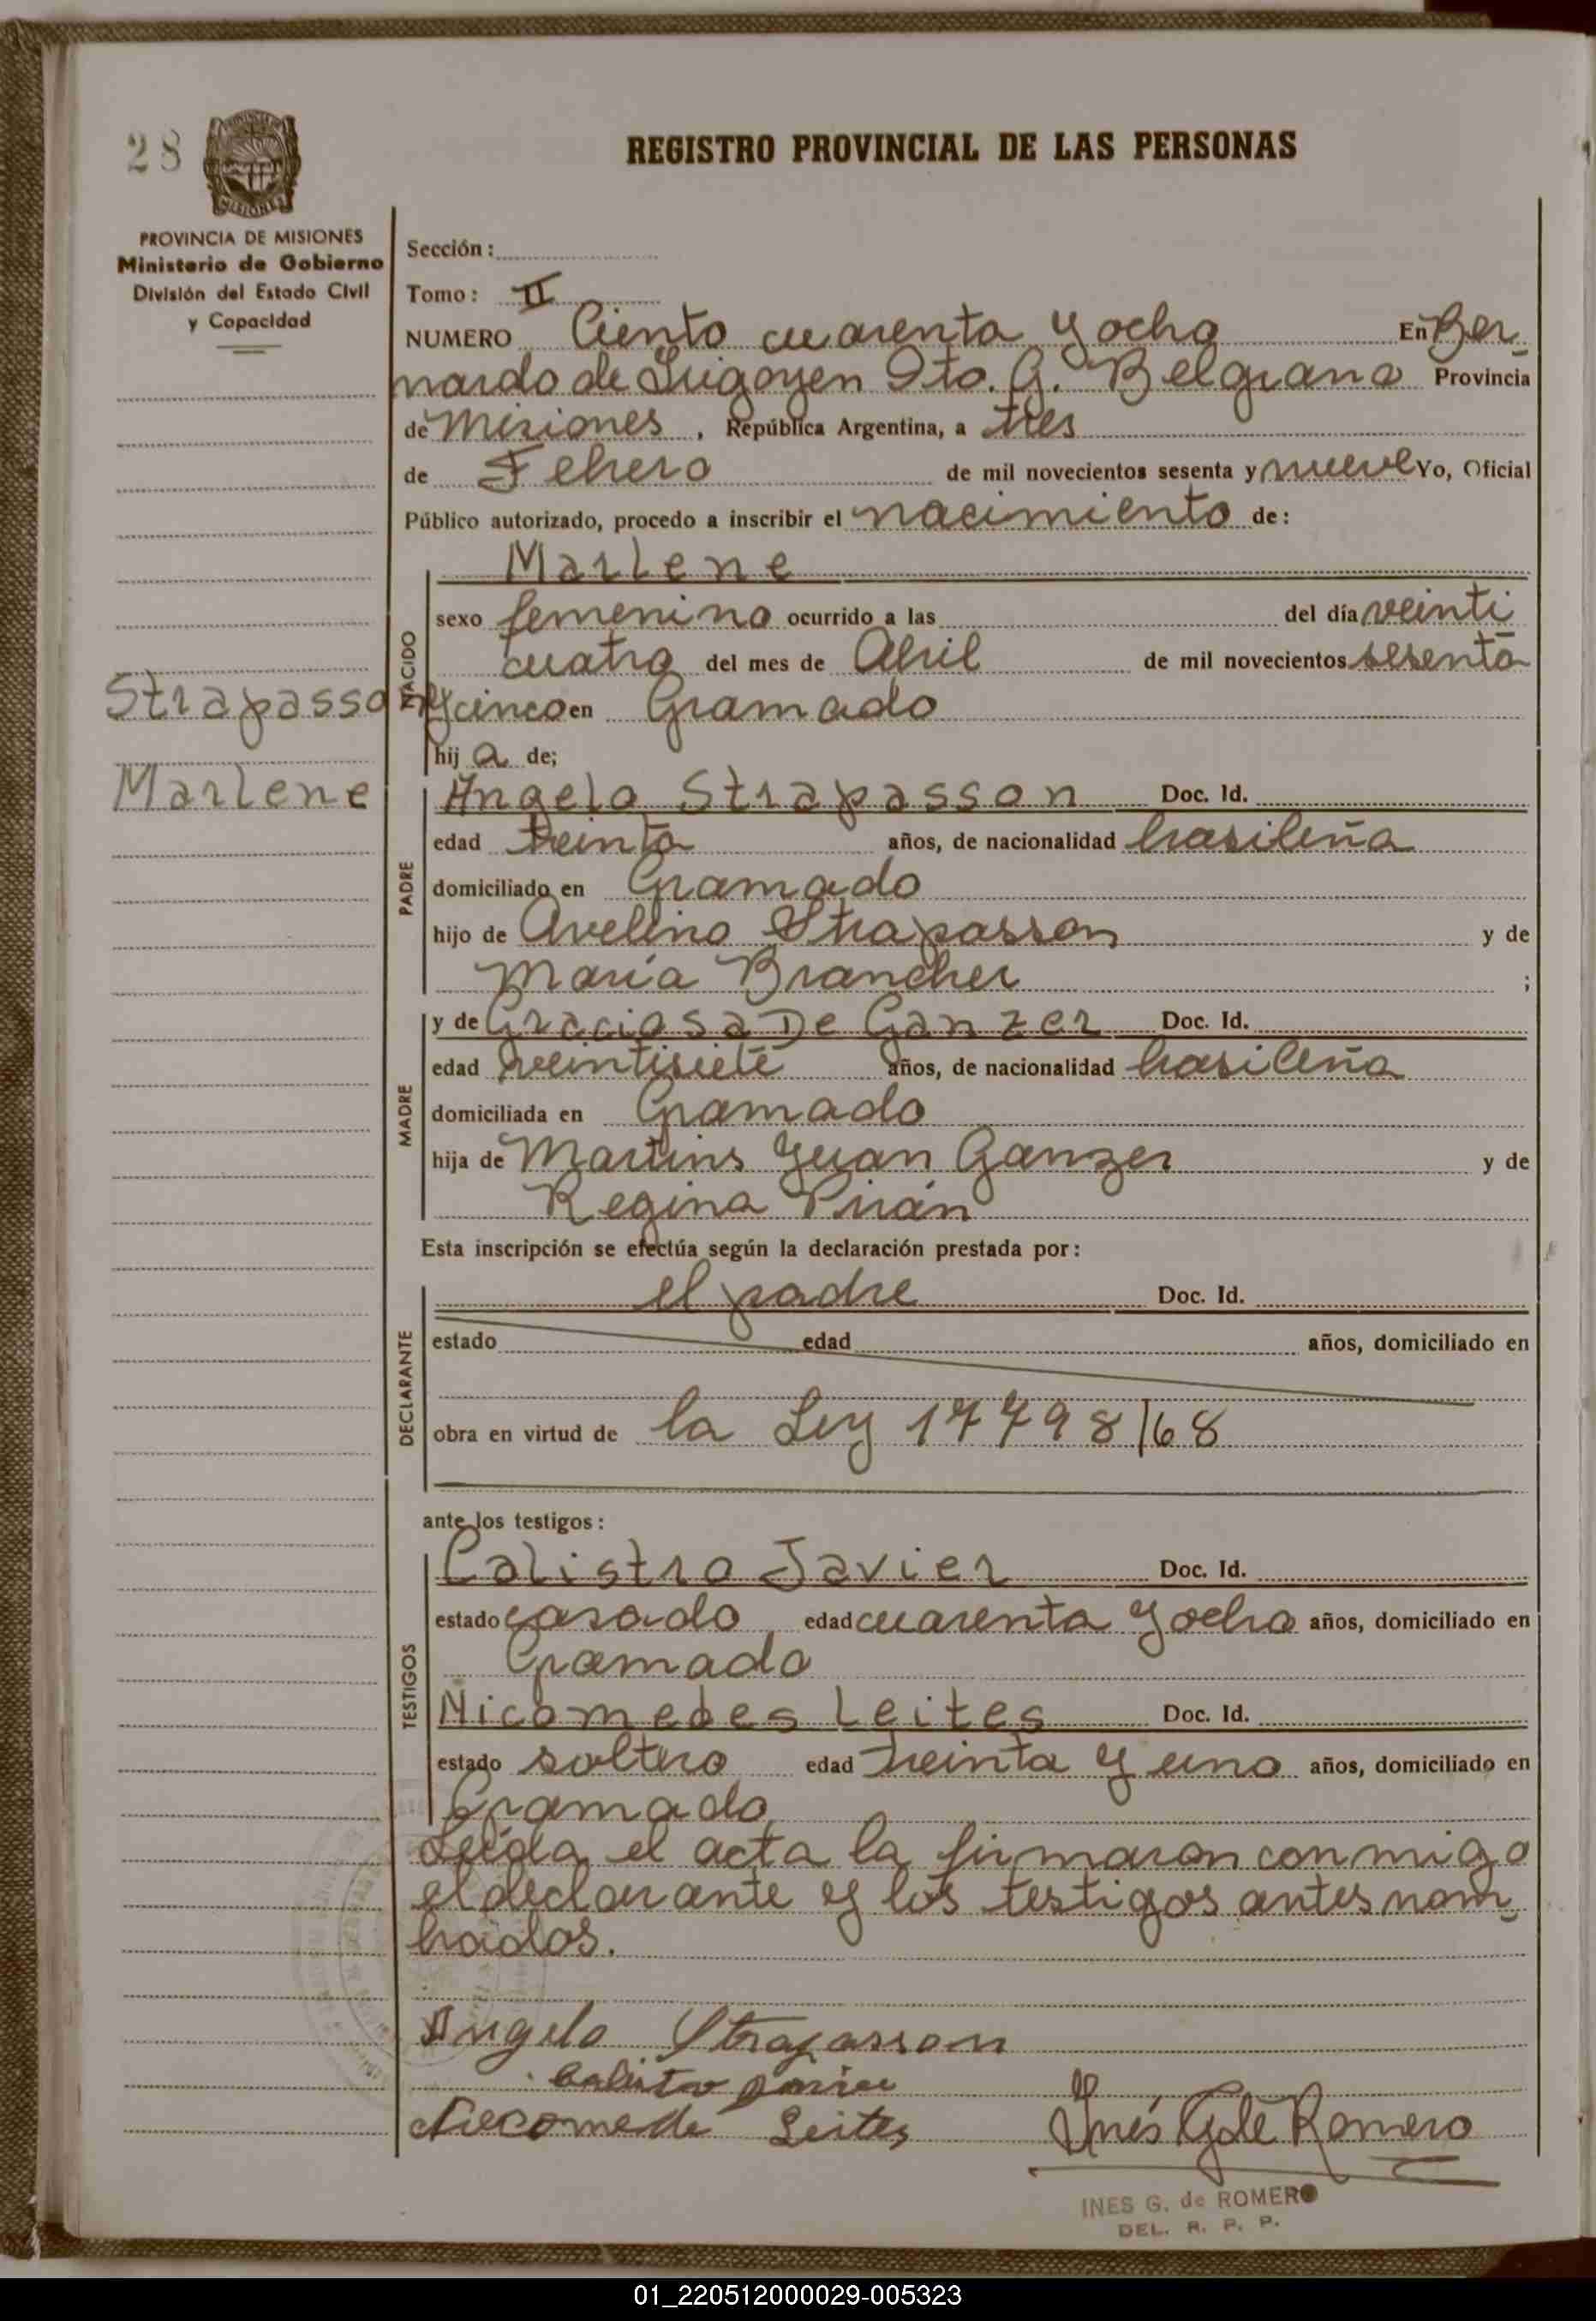 28
MISIONES
REGISTRO PROVINCIAL DE LAS PERSONAS
PROVINCIA DE MISIONES
Ministerio de Gobierno
División del Estado Civil
y Capacidad
Sección:
Tomo: II
NUMERO Ciento cuarenta y ocho En Ber-
nardo de Irigoyen Dto. G. Belgrano Provincia
de Misiones, República Argentina, a tres
de Febrero de mil novecientos sesenta y nueve Yo, Oficial
Público autorizado, procedo a inscribir el nacimiento de:
Marlene
NACIDO
sexo femenino ocurrido a las del día veinti
cuatro del mes de Abril de mil novecientos sesenta
y cinco en Gramado
hija de;
Strapasson
Marlene
PADRE
Angelo Strapasson Doc. Id.
edad treinta años, de nacionalidad brasileña
domiciliado en Gramado
hijo de Avelino Strapasson y de
María Brancher ;
MADRE
y de Graciosa De Ganzer Doc. Id.
edad veintisiete años, de nacionalidad brasileña
domiciliada en Gramado
hija de Martins Juan Ganzer y de
Regina
Esta inscripción se efectúa según la declaración prestada por:
DECLARANTE
el padre Doc. Id.
estado edad años, domiciliado en
obra en virtud de la Ley 17798/68
ante los testigos:
TESTIGOS
Calistro Javier Doc. Id.
estado casado edad cuarenta y ocho años, domiciliado en
Gramado
Nicomedes Leites Doc. Id.
estado soltero edad treinta y uno años, domiciliado en
Gramado
Leída el acta la firmaron conmigo
el declarante y los testigos antes nom-
brados.
Angelo Strapasson
Necomede Leites
Inés G de Romero
INES G. de ROMERO
DEL. R. P. P.
01_220512000029-005323